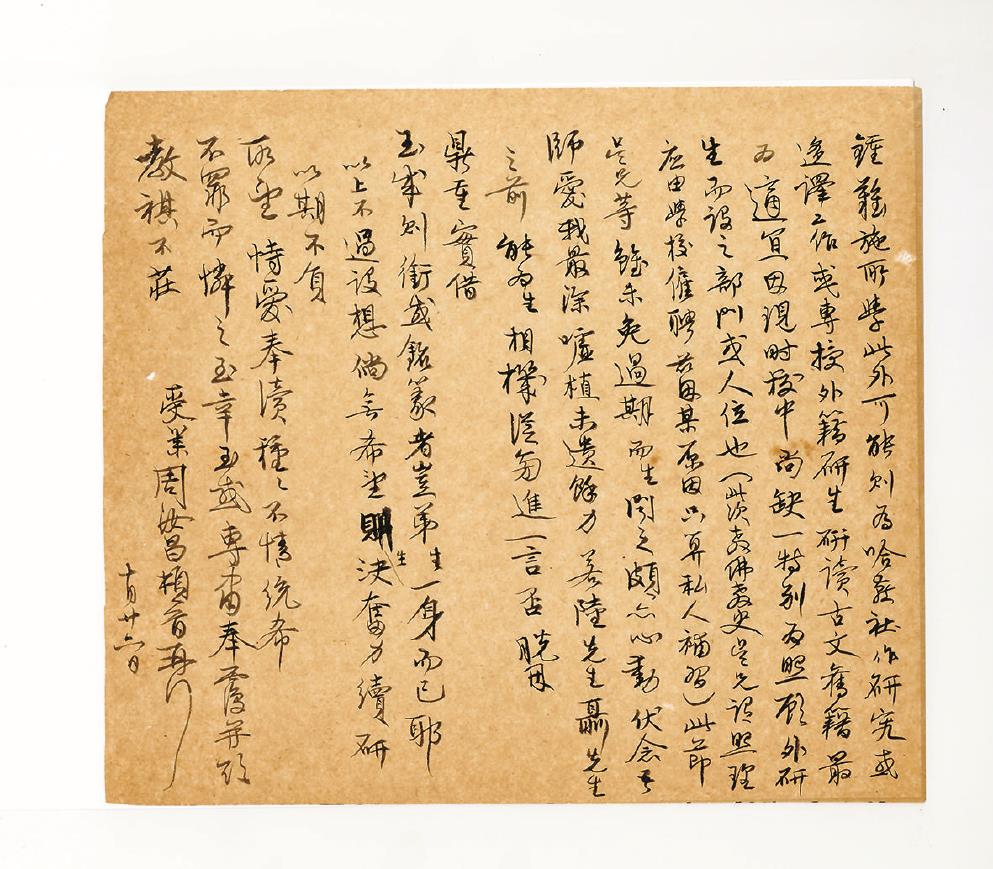 鍾難施所學此外可能則為哈燕社作研究或
迻譯工作或專授外籍研生研讀古文舊籍最
為適宜因現時校中尚缺一特別為照顧外研
生而設之部門或人位也(此次教佛教史吳兄設照理
應由學校僱聘茲因某原因只算私人補習)此節
吳兄等雖未免過期而生聞之頗亦心動伏念吾
師愛我最深噓植未遺餘力若陸先生聶先生
之前能為生相機從旁進一言否脫因
鼎重實借
玉成則銜感銘篆者豈弟生一身而已耶
以上不過設想倘無希望生則決奮力續研
以期不負
所望恃愛奉瀆種種不情統希
不罪而憐之至幸至感專肅奉覆并頌
教祺不莊
受業周汝昌頓首再行
十月廿六日